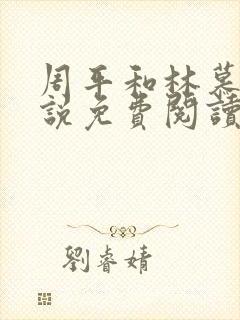 周平和林慕
說免費閱讀
劉睿婧